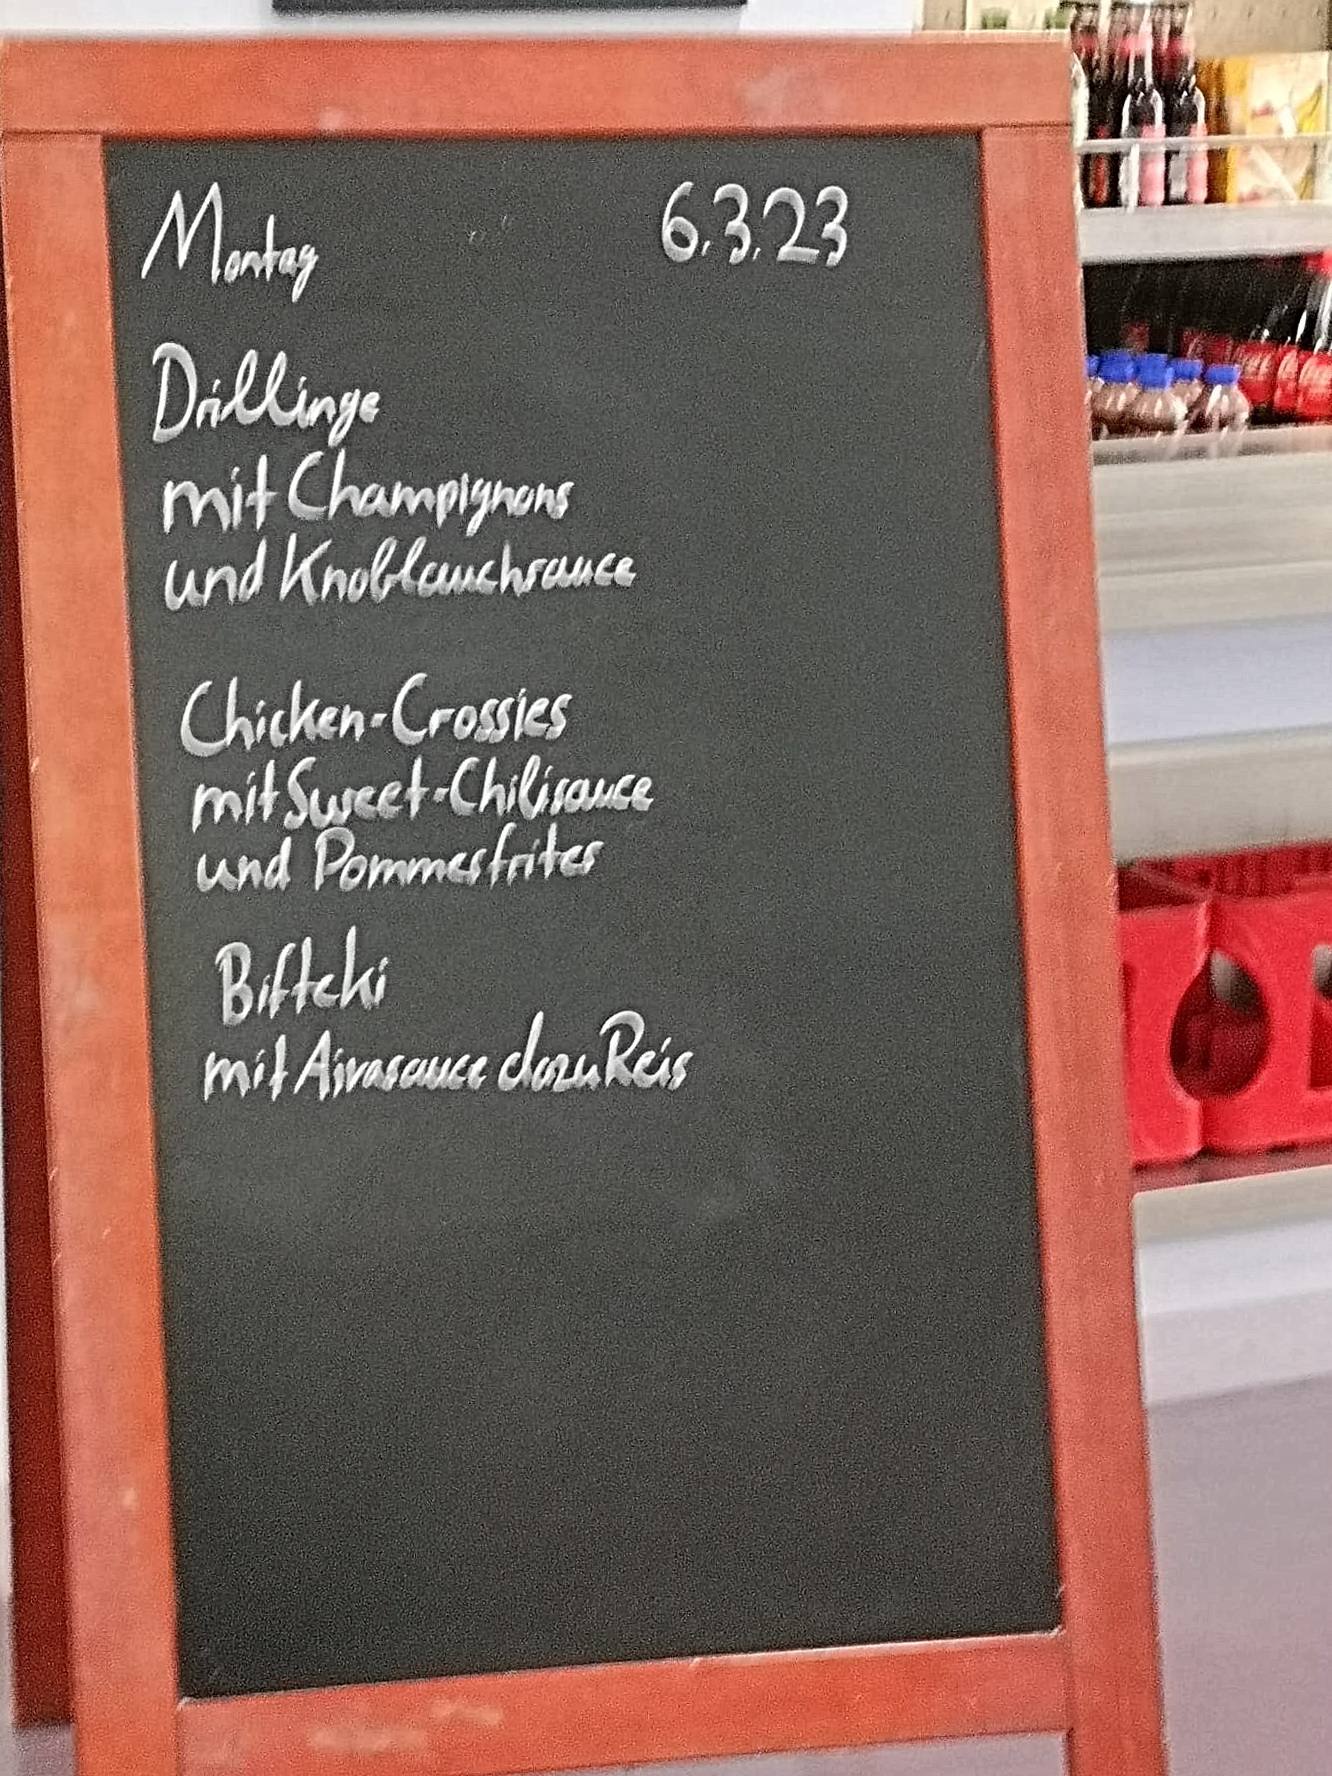 Montag 6.3.23
Drillinge
mit Champignons
und Knoblauchsauce
Chicken-Crossies
mit Sweet-Chilisauce
und Pommesfrites
Bifteki
mit Ajvasauce dazu Reis